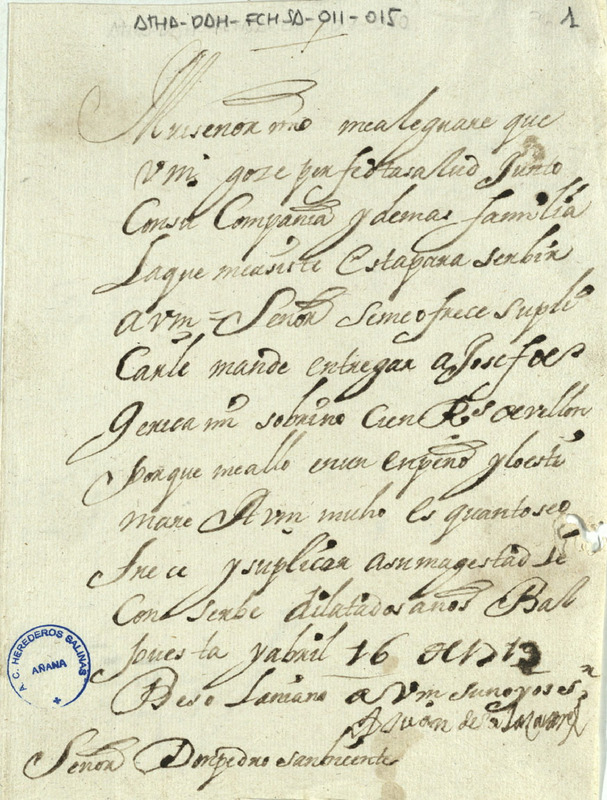 ATHA-DAH-FCHSA-011-015
1
Mui señor mio mealegrare que
Vm goze perfectasalud Junto
Consu Compañia y demas familia
Laque measiste Estapara serbir
avm = Señor semeofrece supli
Carle mande entregar a Josef de
Gerica mi sobrino Cien Rs devellon
Porque meallo enun enpeño yloesti
mare A vm muho Es quantoseo
frece y suplicar asumagestad le
Con serbe dilatados años Bal
pues ta y abril 16 de 1713
Beso Lamano avm
Juan de
Señor Don pedro sanbicente
A. C. HEREDEROS SALINAS
AÑANA